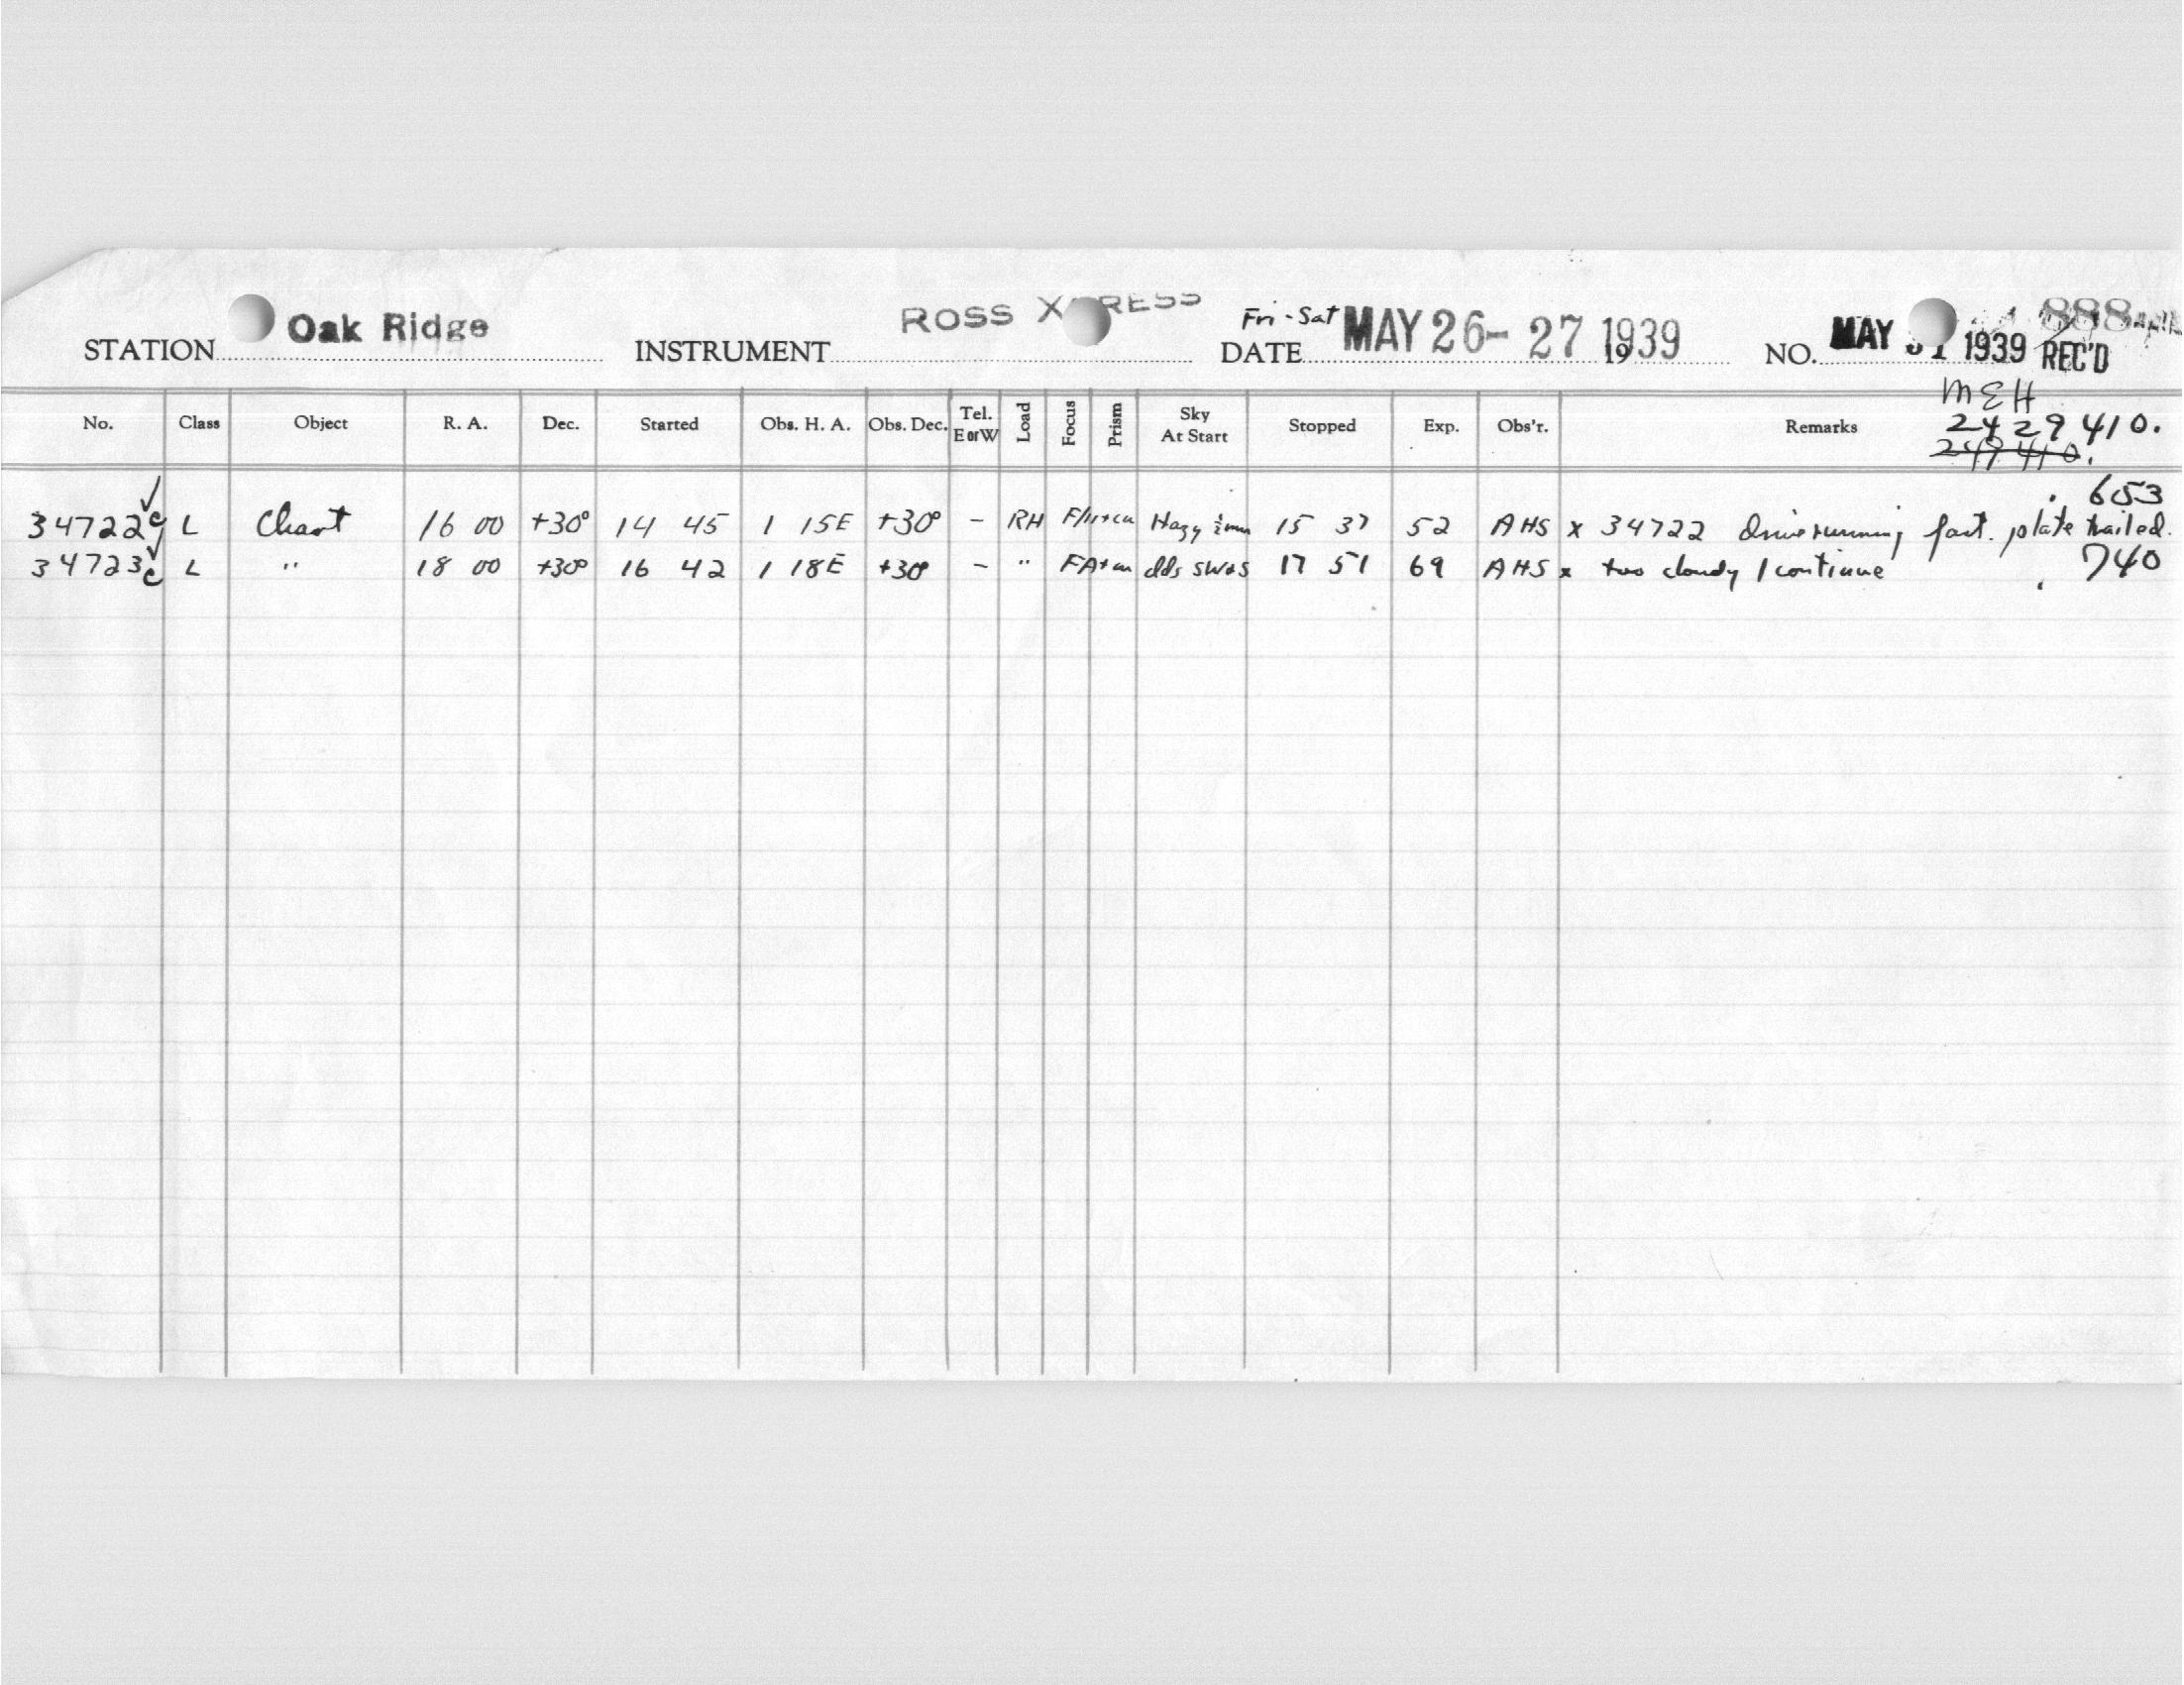 STATION Oak Ridge INSTRUMENT ROSS X RESS DATE Fri-Sat MAY 26-27 1939 19 NO. MAY 31 1939 REC'D 888
MEH
No. Class Object R. A. Dec. Started Obs. H. A. Obs. Dec. Tel. E or W Load Focus Prism Sky At Start Stopped Exp. Obs'r. Remarks 2429410.
. 653
34722 c L Chart 16 00 +30° 14 45 1 15E +30° - RH Hazy 15 37 52 AHS x 34722 Drive running fast. plate trailed.
34723 c L " 18 00 +30° 16 42 1 18E +30° - " clds SW+S 17 51 69 AHS x too cloudy / continue . 740